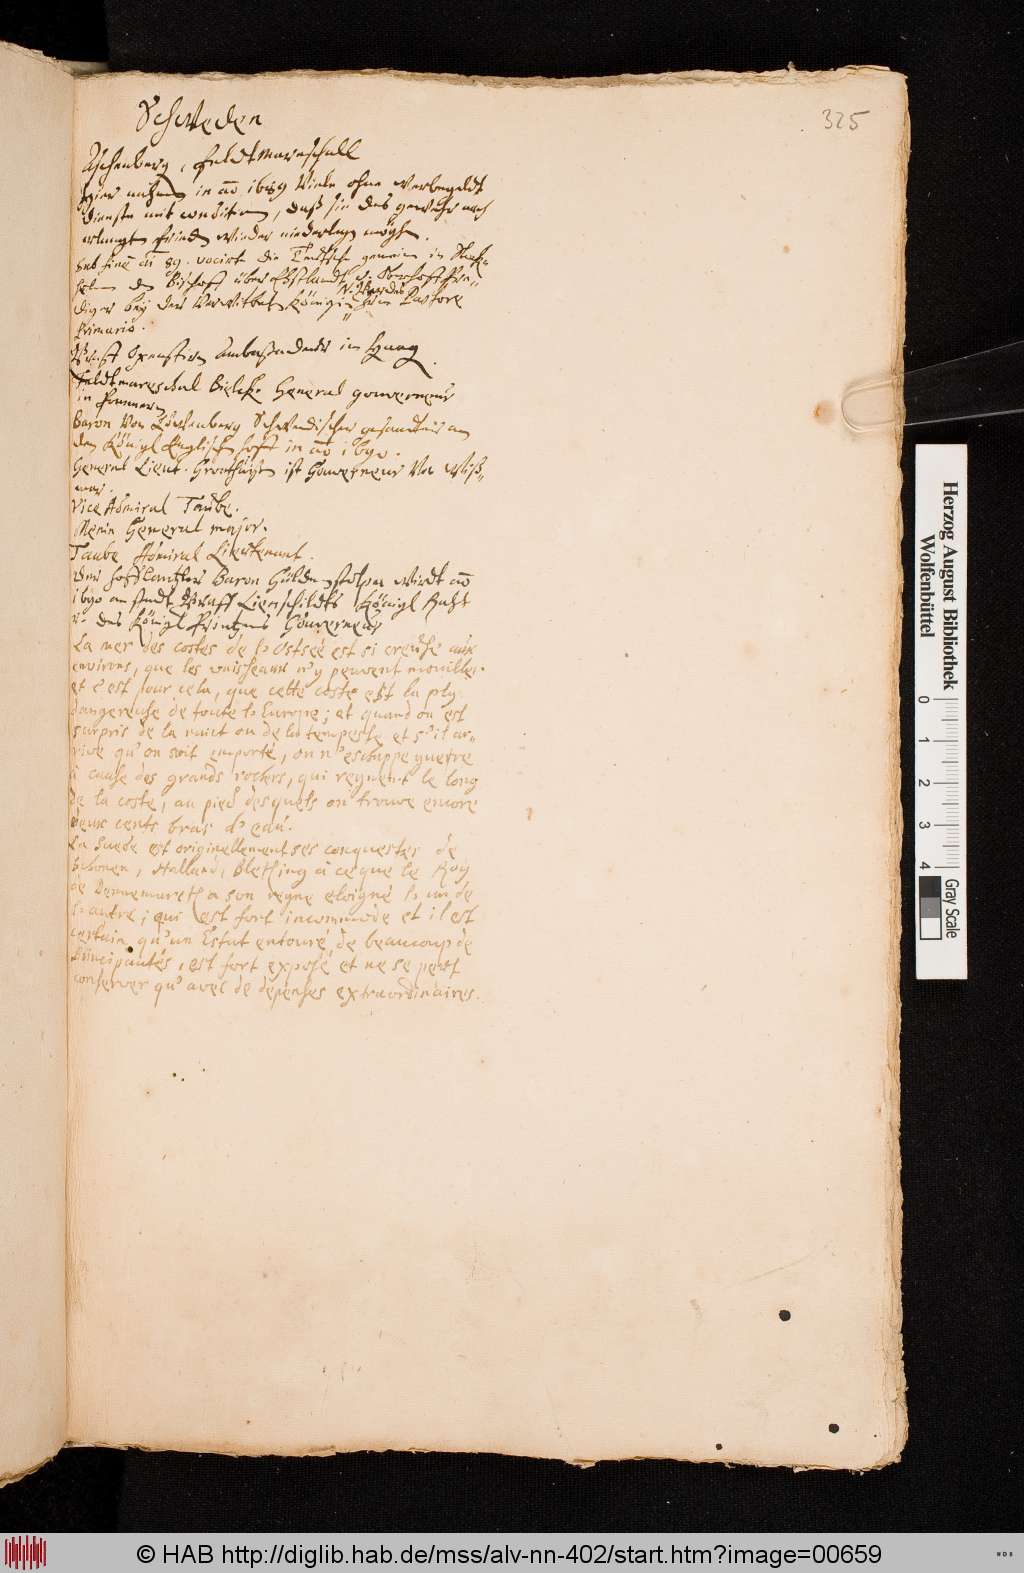 325
Schweden
Aschenberg, Feldtmareschall
hier nahmen in ao 1689 Viele ohne werbegeldt
dienste mit condition, daß sie das gewehr nach
erlangten frieden wieder niederlegen möchten.
sub fine ao 89. vocirte die Teutsche gemeine in Stock-
holm den Bischoff über Ehstlandt, Oberhoff Pre-
diger bey der Verwitbeten Königin zum Pastore
Primario.
Graff Oxenstirn Ambassadeur im Haag
Feldtmareschal Bielcke General gouverneur
in Pommern
Baron Von Schwedischer gesandter am
den Königl Englischen hoff in ao 1690.
General Lieut. ist Gouverneur Von Wiß-
mar.
Vice Admiral Taube.
General major.
Taube Admiral Lieutenant.
der hoffCantzler Baron Güldenstolpe wirdt ao
1690 an stadt Graff Königl Raht
v. des Königl Printzens Gouverneur
La mer des costes de l'Ostseé est si creuse aux
environs, que les vaisseaux n'y peuvent mouiller
et c'est pour cela, que cette coste est la ply
dangereuse de toute l'Europe; et quand on est
surpris de la nuict ou de la tempeste et s'il ar-
rive qu'on soit emporté, on n'eschappe guere
à cause des grands rochers, qui regnent le long
de la coste, au pied desquels on trouve encore
deux cents bras d'eau.
La Suede est originellement ses conquestes de
Schonen, Halland, Bleking à ce que le Roy
de Dennemarck a son regne eloigné l'un de
l'autre; qui est fort incommode et il est
certain qu'un Estat entouré de beaucoup de
Principautés, est fort exposé et ne se peut
conserver qu'avec de depenses extraordinaires.
Herzog August Bibliothek
Wolfenbüttel
0 1 2 3 4
Gray Scale
© HAB http://diglib.hab.de/mss/alv-nn-402/start.htm?image=00659